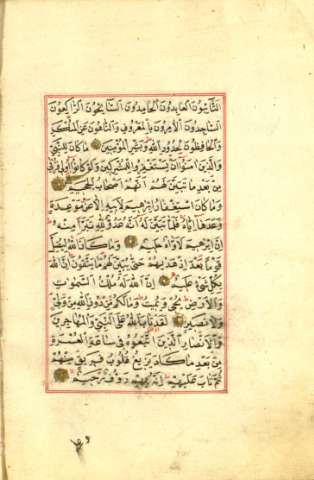 التَّائِبُونَ الْعَابِدُونَ الْحَامِدُونَ السَّائِحُونَ الرَّاكِعُونَ
السَّاجِدُونَ الْآمِرُونَ بِالْمَعْرُوفِ وَالنَّاهُونَ عَنِ الْمُنْكَرِ
وَالْحَافِظُونَ لِحُدُودِ اللَّهِ وَبَشِّرِ الْمُؤْمِنِينَ مَا كَانَ لِلنَّبِيِّ
وَالَّذِينَ آمَنُوا أَنْ يَسْتَغْفِرُوا لِلْمُشْرِكِينَ وَلَوْ كَانُوا أُولِي قُرْبَى
مِنْ بَعْدِ مَا تَبَيَّنَ لَهُمْ أَنَّهُمْ أَصْحَابُ الْجَحِيمِ
وَمَا كَانَ اسْتِغْفَارُ إِبْرَاهِيمَ لِأَبِيهِ إِلَّا عَنْ مَوْعِدَةٍ
وَعَدَهَا إِيَّاهُ فَلَمَّا تَبَيَّنَ لَهُ أَنَّهُ عَدُوٌّ لِلَّهِ تَبَرَّأَ مِنْهُ
إِنَّ إِبْرَاهِيمَ لَأَوَّاهٌ حَلِيمٌ وَمَا كَانَ اللَّهُ لِيُضِلَّ
قَوْمًا بَعْدَ إِذْ هَدَاهُمْ حَتَّى يُبَيِّنَ لَهُمْ مَا يَتَّقُونَ إِنَّ اللَّهَ
بِكُلِّ شَيْءٍ عَلِيمٌ إِنَّ اللَّهَ لَهُ مُلْكُ السَّمٰوَاتِ
وَالْأَرْضِ يُحْيِي وَيُمِيتُ وَمَا لَكُمْ مِنْ دُونِ اللَّهِ مِنْ وَلِيٍّ
وَلَا نَصِيرٍ لَقَدْ تَابَ اللَّهُ عَلَى النَّبِيِّ وَالْمُهَاجِرِينَ
وَالْأَنْصَارِ الَّذِينَ اتَّبَعُوهُ فِي سَاعَةِ الْعُسْرَةِ
مِنْ بَعْدِ مَا كَادَ يَزِيغُ قُلُوبُ فَرِيقٍ مِنْهُمْ
ثُمَّ تَابَ عَلَيْهِمْ إِنَّهُ بِهِمْ رَءُوفٌ رَحِيمٌ